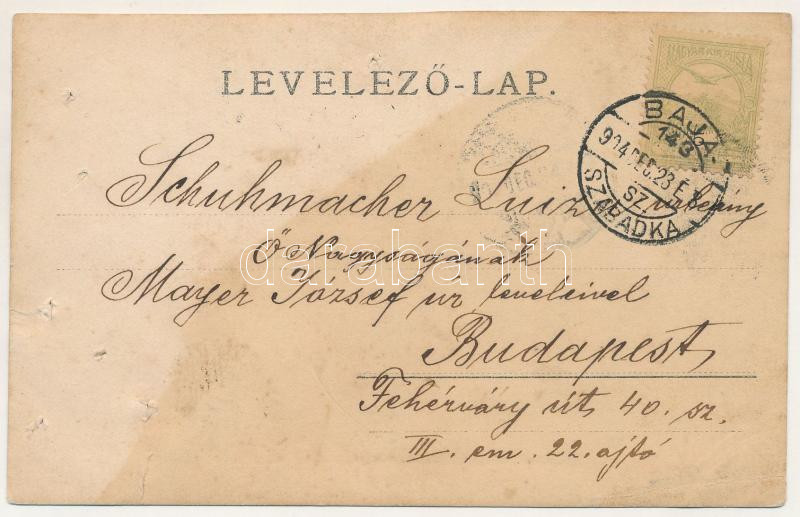 MAGYAR KIR. POSTA
LEVELEZŐ-LAP.
BAJA
143
904 DEC. 23 É
SZ.
SZABADKA
Schuhmacher Luiz úrleány
Ő Nagyságának
darabanth
Mayer József úr leveleivel
Budapest,
Fehérváry út, 40. sz.
III. em. 22. ajtó